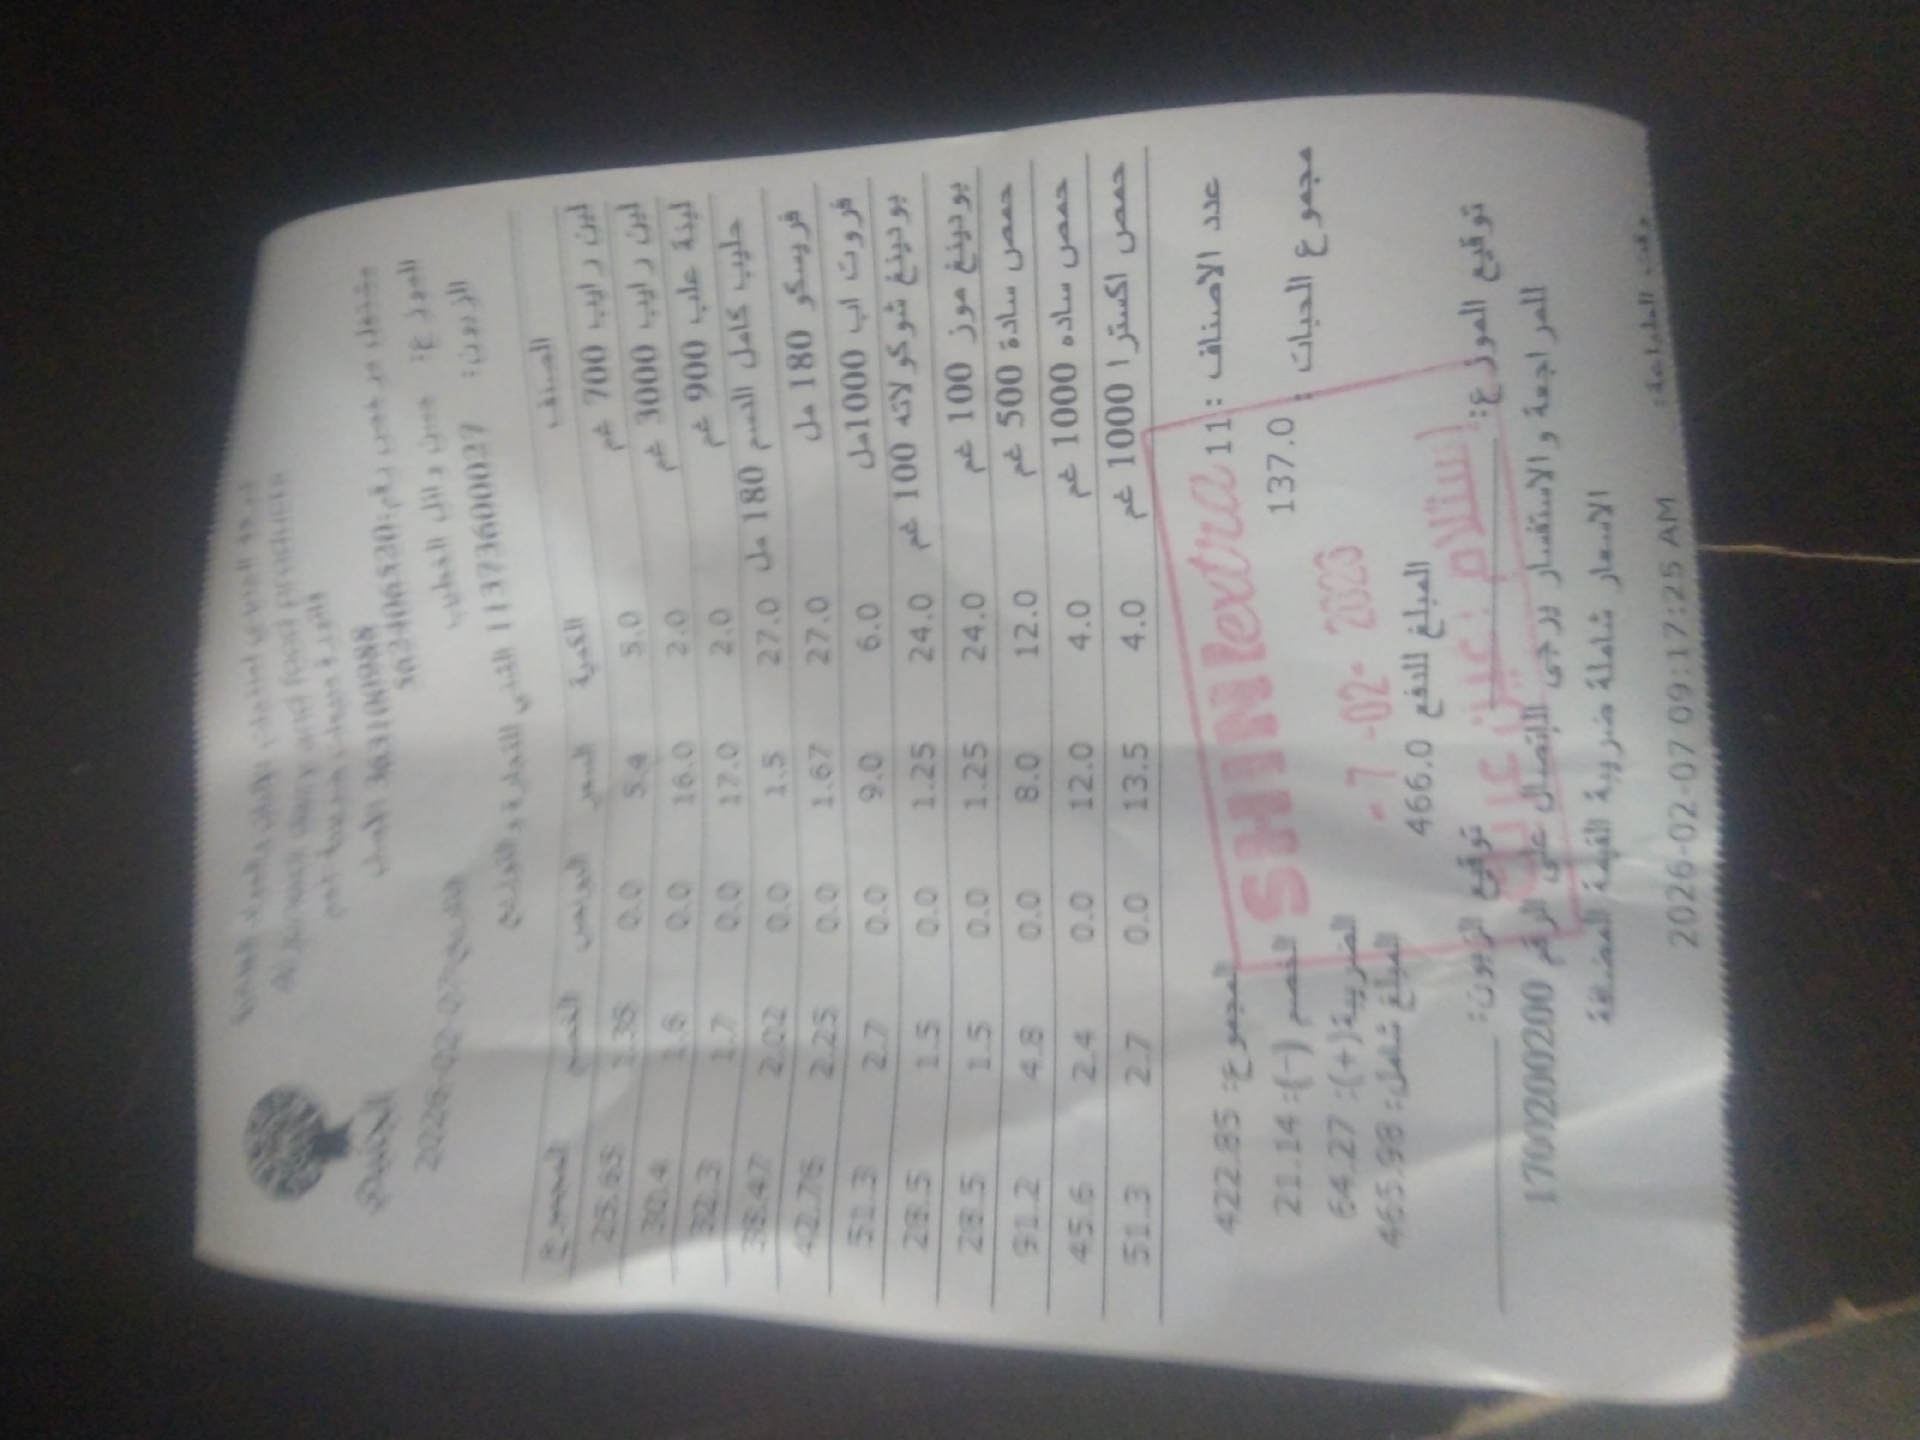 الجنيدي
Aljuneidi dairy and food products
مشتغل مرخص رقم:
الموزع: حسن وائل
الزبون: 1137360027 الشني للتجارة والتوزيع
التاريخ: 2026-02-07
الصنف الكمية السعر البونص الخصم المجموع
لبن رايب 700 غم 5.0 5.4 0.0 1.35 25.65
لبن رايب 3000 غم 2.0 16.0 0.0 1.6 30.4
لبنة علب 900 غم 2.0 17.0 0.0 1.7 32.3
حليب كامل الدسم 180 مل 27.0 1.5 0.0 2.02 38.47
فريسكو 180 مل 27.0 1.67 0.0 2.25 42.76
فروت اب 1000مل 6.0 9.0 0.0 2.7 51.3
بودينغ شوكولاته 100 غم 24.0 1.25 0.0 1.5 28.5
بودينغ موز 100 غم 24.0 1.25 0.0 1.5 28.5
حمص سادة 500 غم 12.0 8.0 0.0 4.8 91.2
حمص ساده 1000 غم 4.0 12.0 0.0 2.4 45.6
حمص اكسترا 1000 غم 4.0 13.5 0.0 2.7 51.3
عدد الاصناف : 11 المجموع: 422.85
مجموع الحبات : 137.0 الخصم (-): 21.14
الضريبة(+): 64.27
المبلغ شامل: 465.98
المبلغ للدفع 466.0
SHINI extra
- 7 -02- 2023
توقيع الموزع: توقيع الزبون:
للمراجعة والاستفسار يرجى الإتصال على الرقم 1700200200
الاسعار شاملة ضريبة القيمة المضافة
وقت الطباعة: 2026-02-07 09:17:25 AM